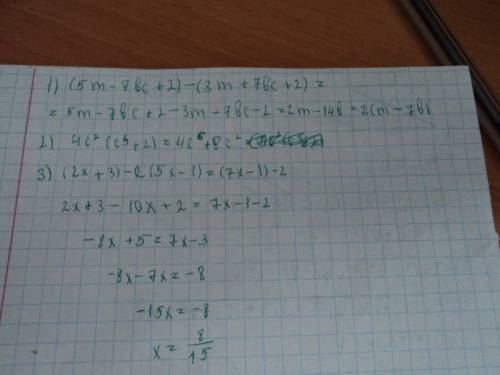 1) (5m - 7bc + 2) - (3m + 7bc + 2) =
= 5m - 7bc + 2 - 3m - 7bc - 2 = 2m - 14b = 2(m - 7b)
2) 4c² (c³ + 2) = 4c⁵ + 8c²
3) (2x + 3) - 2 (5x - 1) = (7x - 1) - 2
2x + 3 - 10x + 2 = 7x - 1 - 2
-8x + 5 = 7x - 3
-8x - 7x = -8
-15x = -8
x = 8/15